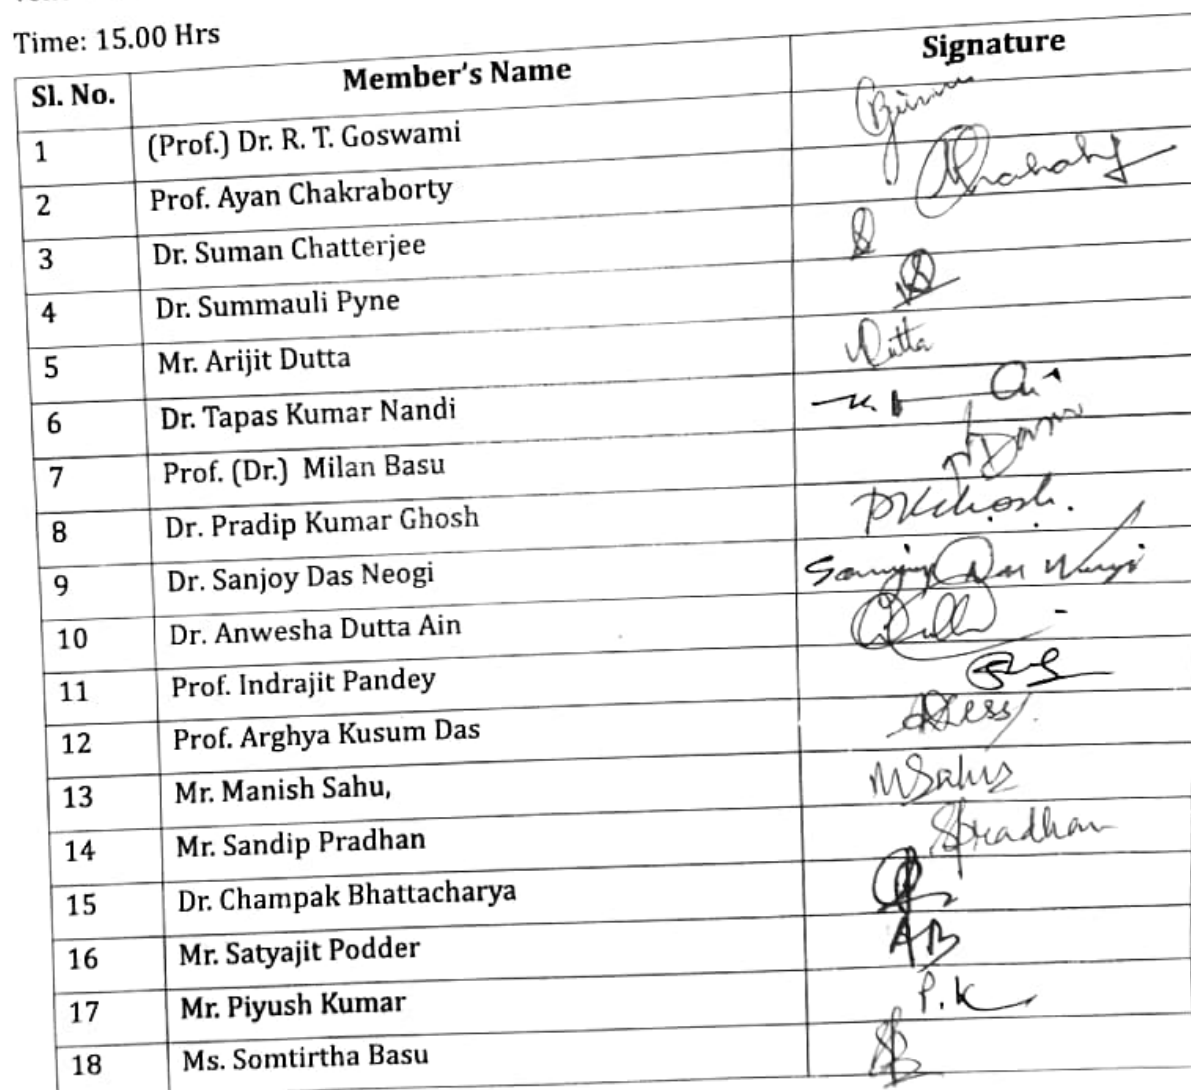 Time: 15.00 Hrs
Sl. No. Member's Name Signature
1 (Prof.) Dr. R. T. Goswami
2 Prof. Ayan Chakraborty
3 Dr. Suman Chatterjee
4 Dr. Summauli Pyne
5 Mr. Arijit Dutta Dutta
6 Dr. Tapas Kumar Nandi
7 Prof. (Dr.) Milan Basu
8 Dr. Pradip Kumar Ghosh PKGhosh.
9 Dr. Sanjoy Das Neogi Sanjoy Das Neogi
10 Dr. Anwesha Dutta Ain
11 Prof. Indrajit Pandey
12 Prof. Arghya Kusum Das
13 Mr. Manish Sahu, MSahu
14 Mr. Sandip Pradhan SPradhan
15 Dr. Champak Bhattacharya
16 Mr. Satyajit Podder AB
17 Mr. Piyush Kumar P.K
18 Ms. Somtirtha Basu SB